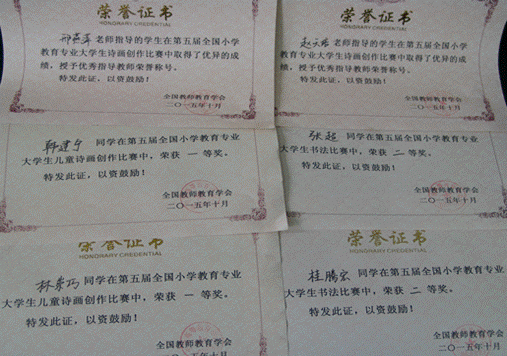 荣誉证书
HONORARY CREDENTIAL
老师指导的学生在第五届全国小学
教育专业大学生诗画创作比赛中取得了优异的成
绩，授予优秀指导教师荣誉称号。
特发此证，以资鼓励！
全国教师教育学会
二〇一五年十月
荣誉证书
HONORARY CREDENTIAL
老师指导的学生在第五届全国小学
教育专业大学生诗画创作比赛中取得了优异的成
绩，授予优秀指导教师荣誉称号。
特发此证，以资鼓励！
全国教师教育学会
二〇一五年十月
韩建宁 同学在第五届全国小学教育专业
大学生儿童诗画创作比赛中，荣获 一 等奖。
特发此证，以资鼓励！
全国教师教育学会
二〇一五年十月
张超 同学在第五届全国小学教育专业
大学生书法比赛中，荣获 二 等奖。
特发此证，以资鼓励！
全国教师教育学会
二〇一五年十月
荣誉证书
HONORARY CREDENTIAL
同学在第五届全国小学教育专业
大学生儿童诗画创作比赛中，荣获 一 等奖。
特发此证，以资鼓励！
全国教师教育学会
二〇一五年十月
荣誉证书
HONORARY CREDENTIAL
桂腾宏 同学在第五届全国小学教育专业
大学生书法比赛中，荣获 二 等奖。
特发此证，以资鼓励！
全国教师教育学会
二〇一五年十月